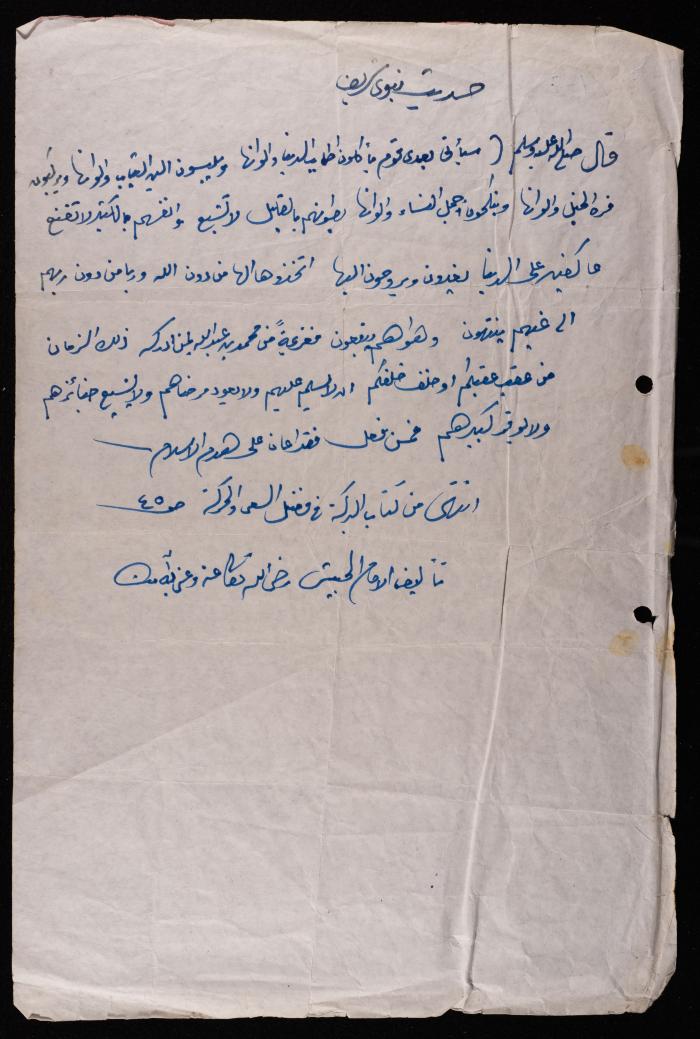 حديث نبوي شريف
قال صلى الله عليه وسلم ( سيأتي بعدي قوم يأكلون اطايب الدنيا والوانها ويلبسون الين الثياب والوانها ويركبون
فره الخيل والوانها وينكحون اجمل النساء والوانها بطونهم بالقليل لا تشبع وانفسهم بالكثير لا تقنع
عاكفين على الدنيا يغدون ويروحون اليها اتخذوها الها من دون الله وربا من دون ربهم
الى غيهم ينتهون وهواهم يتبعون فعزيمةً من محمد بن عبد الله لمن ادركه ذلك الزمان
من عقب عقبكم او خلف خلفكم ان لا يسلم عليهم ولا يعود مرضاهم ولا يشيع جنائزهم
ولا يوقر كبيرهم فمن فعل فقد اعان على هدم الاسلام
انتهى من كتاب البركة في فضل السعي والحركة ص ٤٥
تأليف الامام الحبيشي رضي الله تعالى عنه وعنا به آمين